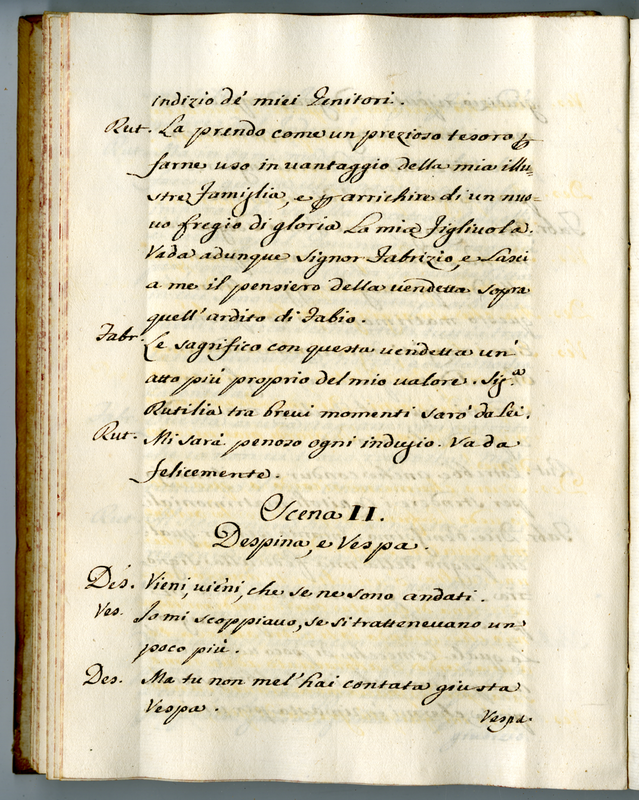 indizio de' miei Genitori.
Rut. La prendo come un prezioso tesoro ꝑ
farne uso in vantaggio della mia illu=
stre Famiglia, e ꝑ arrichire di un nuo=
vo fregio di gloria La mia Figliuola.
Vada adunque Signor Fabrizio, e Lasci
a me il pensiero della vendetta sopra
quell' ardito di Fabio.
Fabr. Le sagrifico con questa vendetta un'
atto più proprio del mio valore. Sig.ª
Rutilia tra brevi momenti sarò da Lei.
Rut. Mi sarà penoso ogni indugio. Vada
felicemente.
Scena II.
Despina, e Vespa.
Des. Vieni, vieni, che se ne sono andati.
Ves. Io mi scoppiavo, se si trattenevano un
poco più.
Des. Ma tu non mel' hai contata giusta
Vespa.
Vespa.